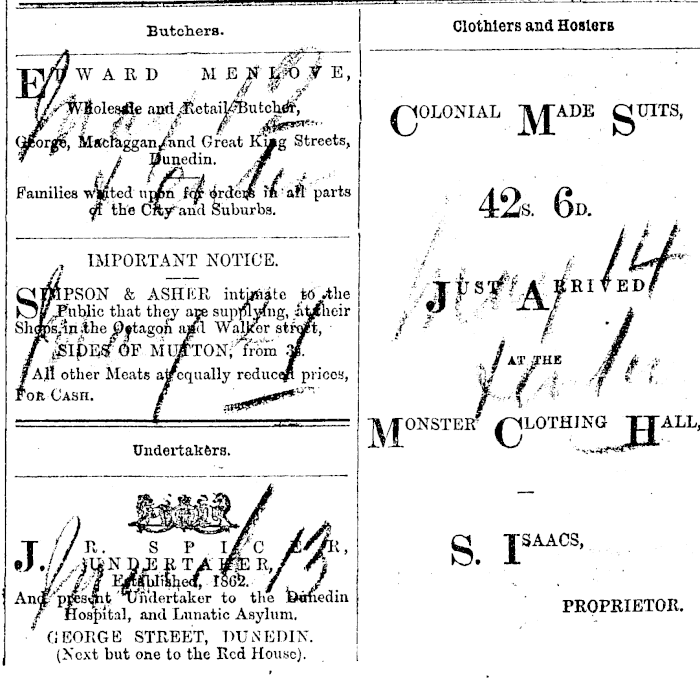 Butchers.
EDWARD MENLOVE,
Wholesale and Retail Butcher,
George, Maclaggan, and Great King Streets,
Dunedin.
Families waited upon for orders in all parts
of the City and Suburbs.
IMPORTANT NOTICE.
SIMPSON & ASHER intimate to the
Public that they are supplying, at their
Shops, in the Octagon and Walker street,
SIDES OF MUTTON, from 3s.
All other Meats at equally reduced prices,
FOR CASH.
Undertakers.
J. R. SPICER,
UNDERTAKER,
Established, 1862.
And present Undertaker to the Dunedin
Hospital, and Lunatic Asylum.
GEORGE STREET, DUNEDIN.
(Next but one to the Red House).
Clothiers and Hosiers
COLONIAL MADE SUITS,
42s. 6D.
JUST ARRIVED
AT THE
MONSTER CLOTHING HALL,
S. ISAACS,
PROPRIETOR.
14
13